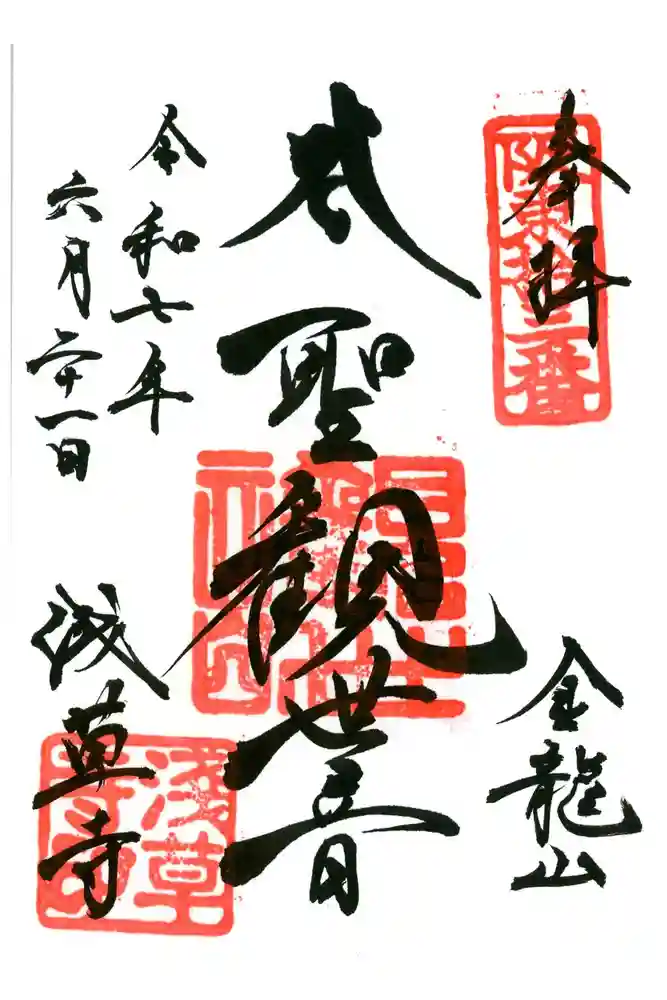 奉拝
阪東拾三番
金龍山
聖観世音
令和七年
六月二十一日
浅草寺
淺草
寺印